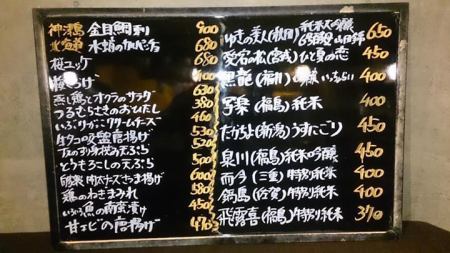 神津島 金目鯛刺 900
北海道 水蛸のカルパッチョ 680
桜ユッケ 680
揚げ
蒸し鶏とオクラのサラダ 630
つるむらさきのおひたし 380
いぶりがっこクリームチーズ 460
生タコ吸盤唐揚げ 530
天ぷら 520
とうもろこしの天ぷら 500
チーズつま揚げ 600
鶏のねぎまみれ 580
魚の南蛮漬け 450
甘エビの唐揚げ 470
ゆきの美人(秋田) 純米大吟醸 山田錦 650
愛宕の松(宮城) ひと夏の恋 450
黒龍(福井) 吟醸 いっちょらい 400
写楽(福島) 純米 400
たかちよ(新潟) うすにごり 450
泉川(福島) 純米吟醸 450
而今(三重) 特別純米 400
鍋島(佐賀) 特別純米 400
飛露喜(福島) 特別純米 370